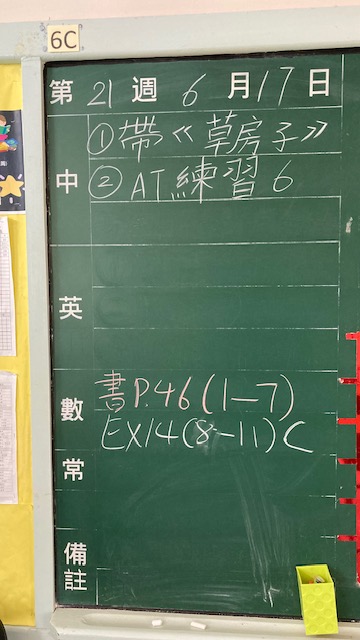 6C
第 21 週 6 月 17 日
中 ①帶《草房子》
② AT 練習 6
英
數 書 P.46 (1-7)
EX14 (8-11) C
常
備註